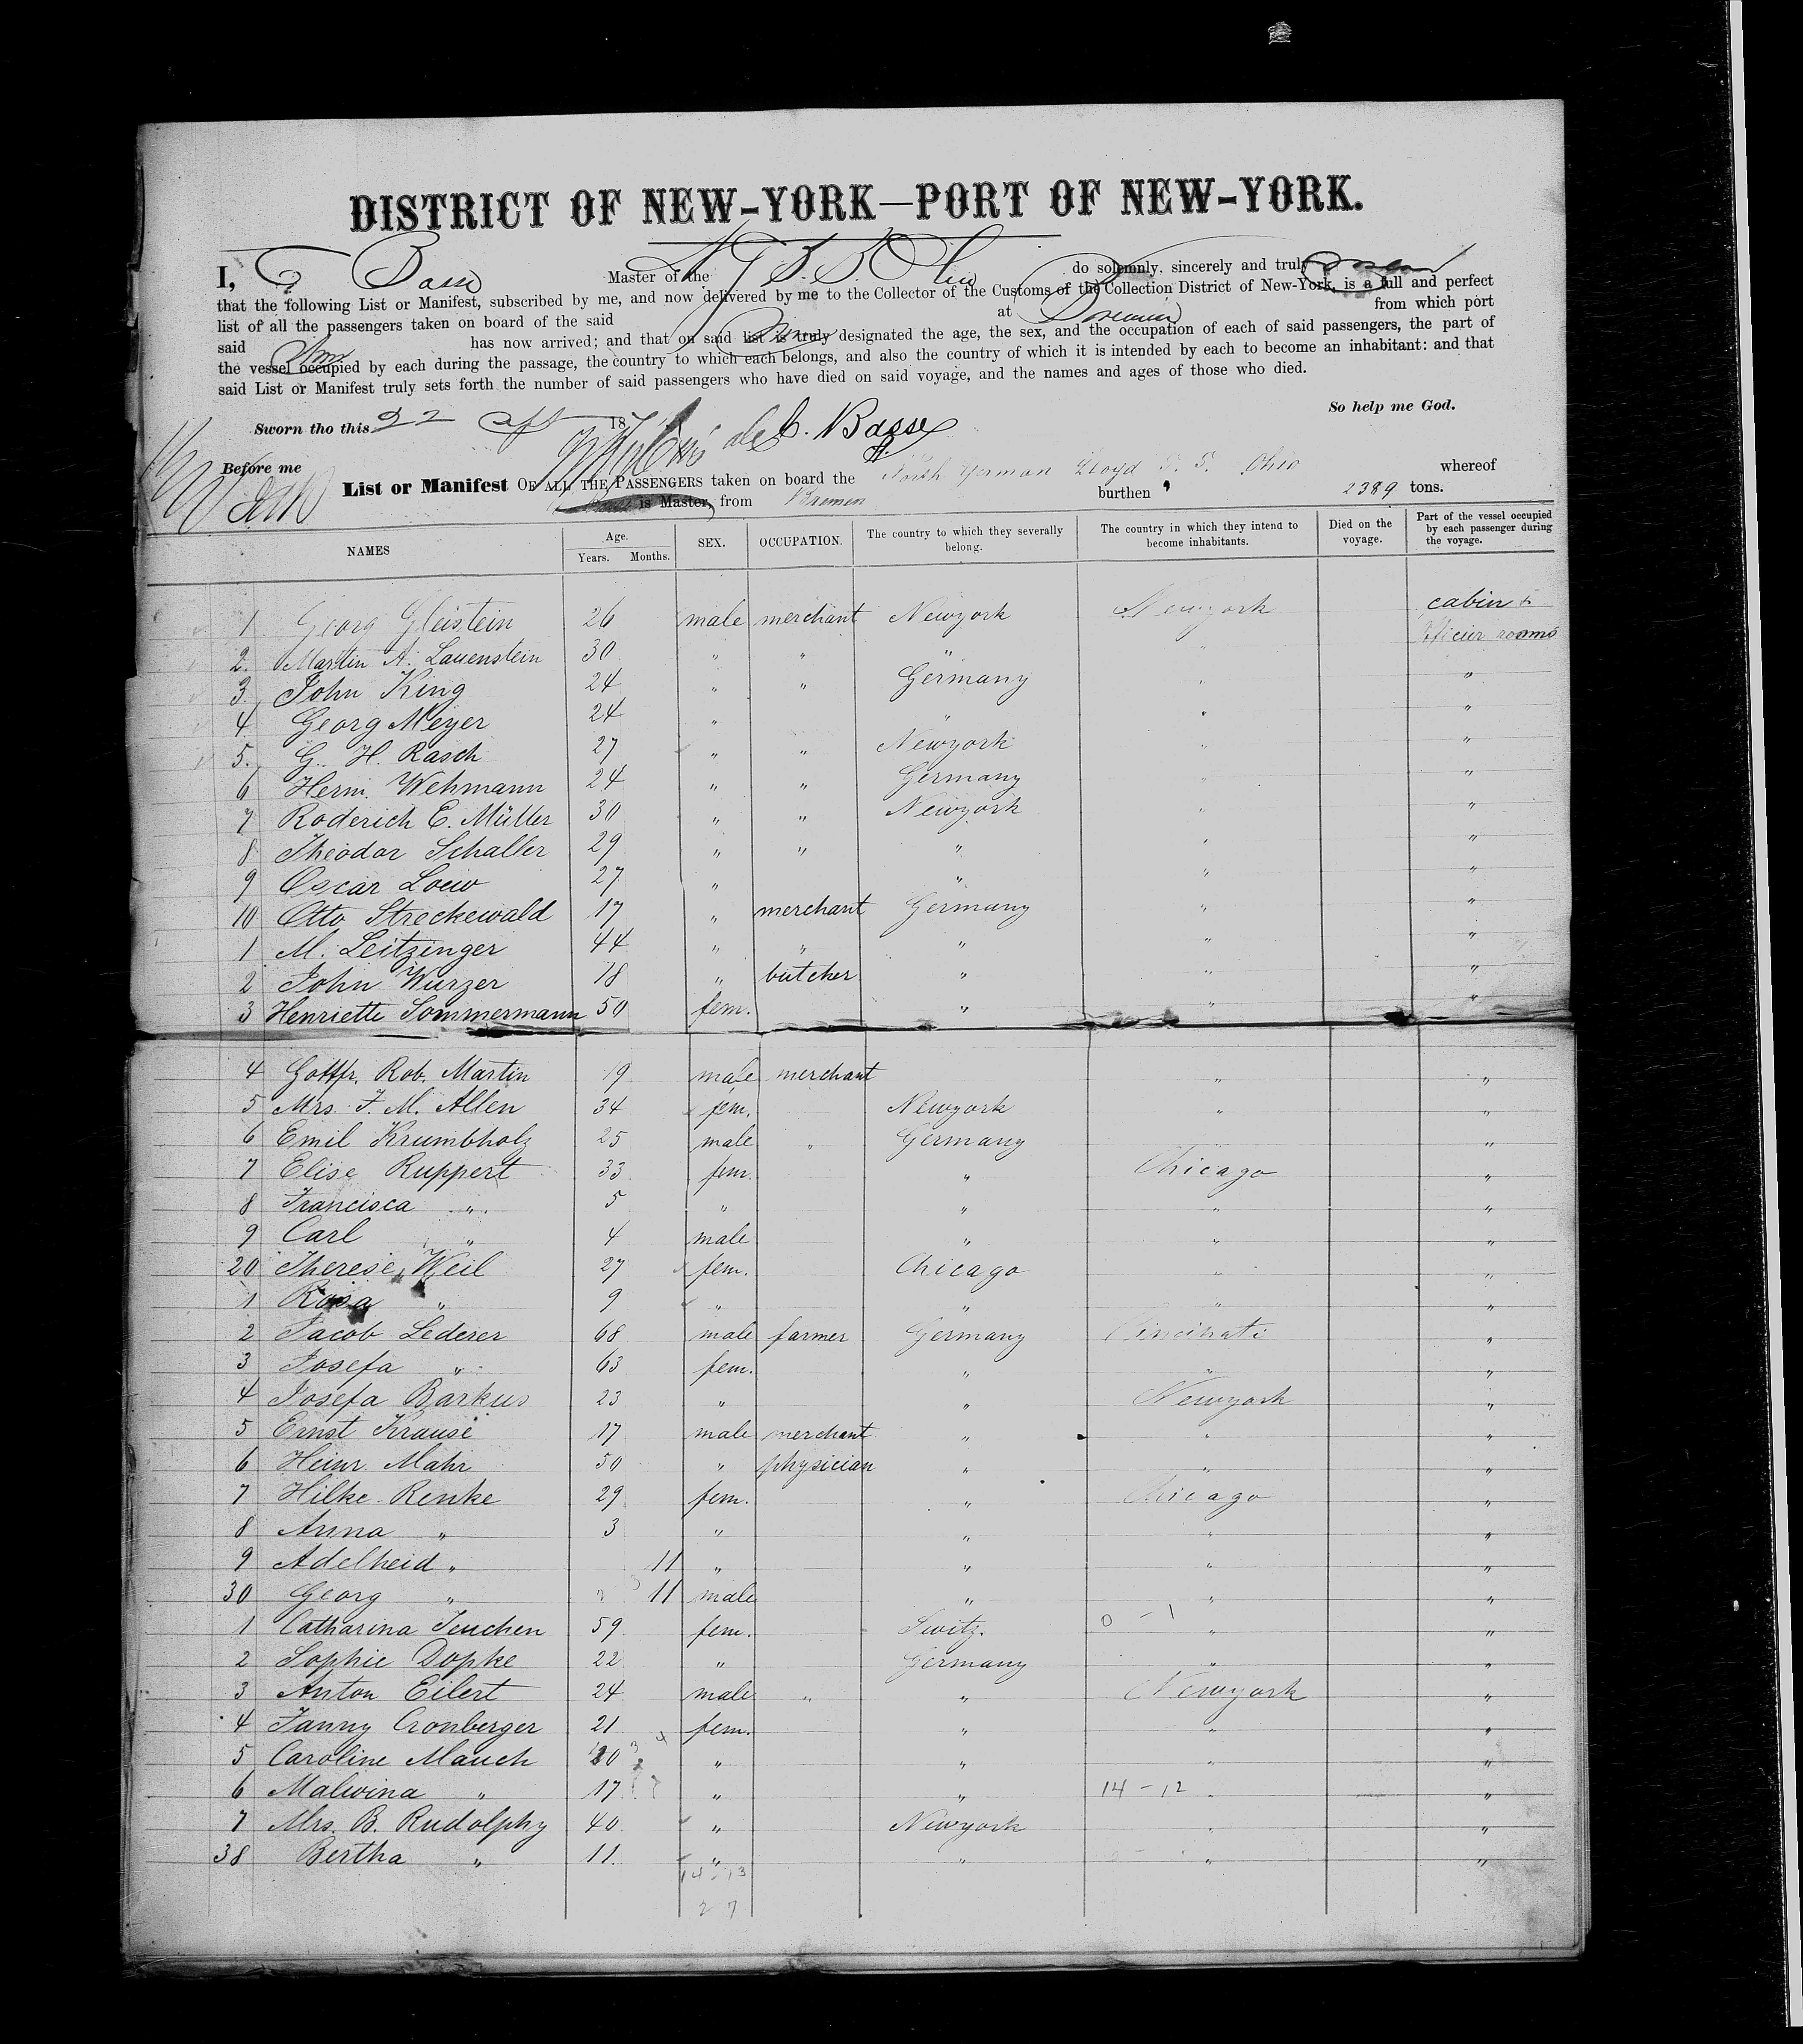 DISTRICT OF NEW-YORK—PORT OF NEW-YORK.
I, Basse Master of the N G S. S. Ohio do solemnly, sincerely and truly swear
that the following List or Manifest, subscribed by me, and now delivered by me to the Collector of the Customs of the Collection District of New-York, is a full and perfect
list of all the passengers taken on board of the said at Bremen from which port
said has now arrived; and that on said list is truly designated the age, the sex, and the occupation of each of said passengers, the part of
the vessel occupied by each during the passage, the country to which each belongs, and also the country of which it is intended by each to become an inhabitant: and that
said List or Manifest truly sets forth the number of said passengers who have died on said voyage, and the names and ages of those who died.
So help me God.
Sworn tho this 22 187 C. Basse
Before me
List or Manifest OF ALL THE PASSENGERS taken on board the North German Lloyd S. S. Ohio whereof
is Master, from Bremen burthen 2389 tons.
NAMES Age. Years. Months. SEX. OCCUPATION. The country to which they severally belong. The country in which they intend to become inhabitants. Died on the voyage. Part of the vessel occupied by each passenger during the voyage.
1 Georg Gleistein 26 male merchant Newyork Newyork cabin &
officier rooms
2. Martin A. Lauenstein 30 " " " "
3. John King 24 " " Germany " "
4 Georg Meyer 24 " " " "
5. G. H. Rasch 27 " " Newyork " "
6 Herm. Wehmann 24 " " Germany " "
7 Roderich E. Müller 30 " " Newyork " "
8 Theodor Schaller 29 " " " " "
9 Oscar Loew 27 " " " "
10 Otto Streckewald 17 " merchant Germany " "
1 M. Leitzinger 44 " " " " "
2 John Wurzer 18 " butcher " " "
3 Henriette Sommermann 50 fem. " " "
4 Gottfr. Rob. Martin 19 male merchant " "
5 Mrs. F. M. Allen 34 fem. Newyork " "
6 Emil Krumbholz 25 male " Germany "
7 Elise Ruppert 33 fem. " Chicago "
8 Francisca " 5 " " " "
9 Carl " 4 male " " "
20 Therese Weil 27 fem. Chicago " "
1 Rosa " 9 " " " "
2 Jacob Lederer 68 male farmer Germany Cincinati "
3 Josefa " 63 fem. " " "
4 Josefa Barkus 23 " " Newyork "
5 Ernst Krause 17 male merchant " " "
6 Heinr. Mahr 50 " physician " " "
7 Hilke Renke 29 fem. " Chicago "
8 Anna " 3 " " " "
9 Adelheid " 11 " " " "
30 Georg " 11 male " " "
1 Catharina Jenchen 59 fem. Switz. 0 - 1 " "
2 Sophie Dopke 22 " Germany " "
3 Anton Eilert 24 male " " Newyork "
4 Fanny Cronberger 21 fem. " " "
5 Caroline Mauch 20 " " " "
6 Malwina " 17 " " 14 - 12 " "
7 Mrs. B. Rudolphy 40 " Newyork " "
38 Bertha " 11. " " " "
14 - 13
27